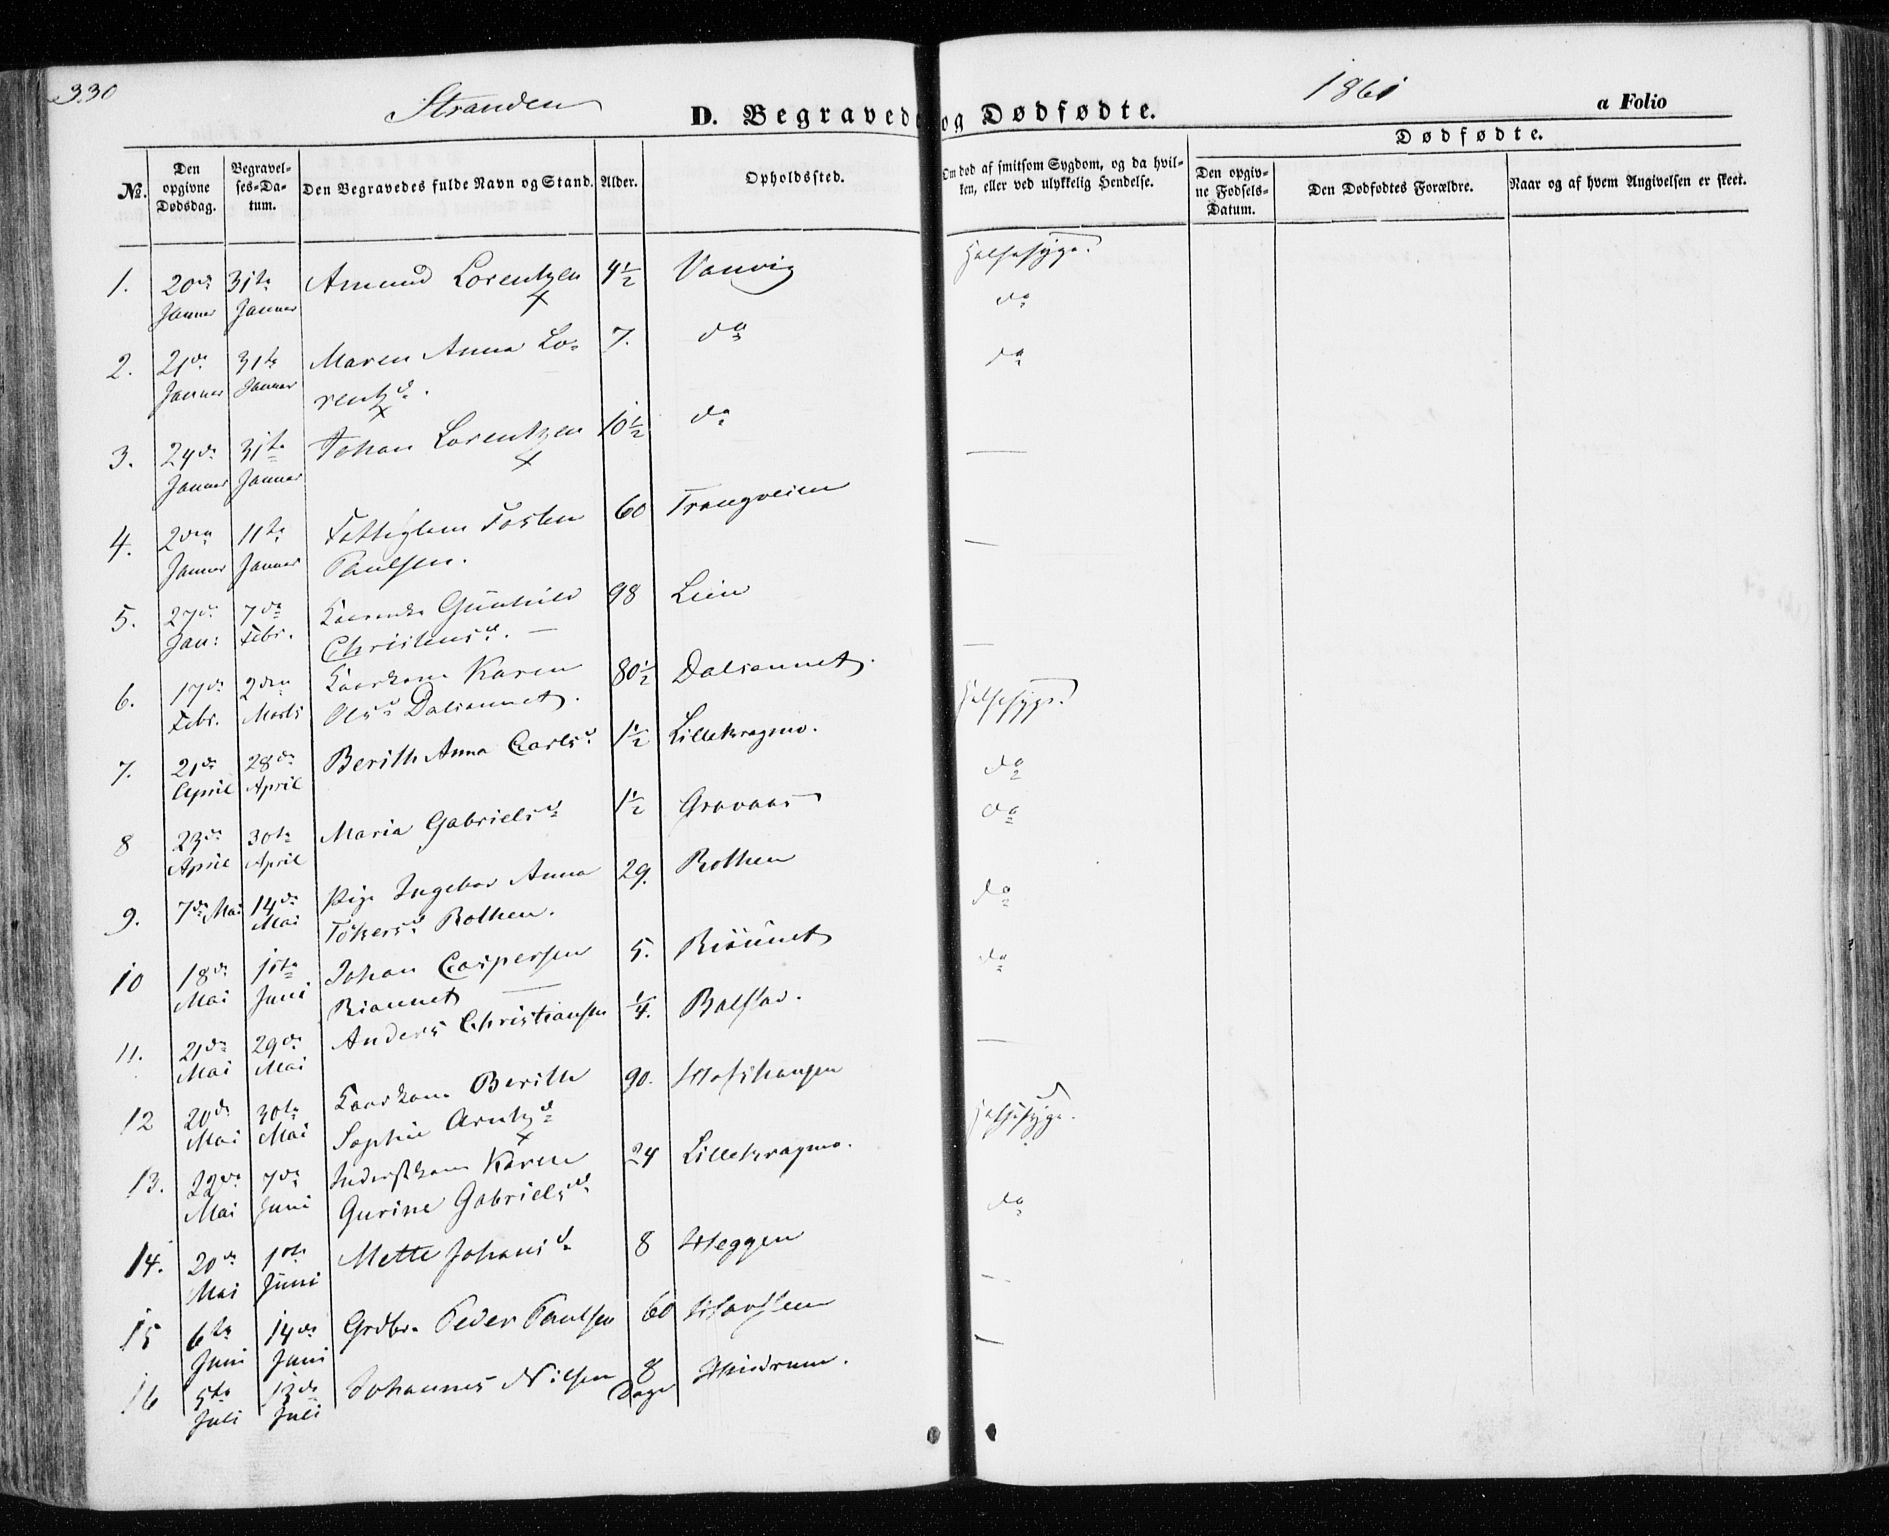 330
Stranden
1861
D. Begravede og Dødfødte.
a Folio
Dødfødte.
No.
Den opgivne Dødsdag.
Begravelses-Datum.
Den Begravedes fulde Navn og Stand.
Alder.
Opholdssted.
Om død af smitsom Sygdom, og da hvilken, eller ved ulykkelig Hendelse.
Den opgivne Fødsels-Datum.
Den Dødfødtes Forældre.
Naar og af hvem Angivelsen er skeet.
1. 20de Januar 31te Januar Amund Lorentzen 4½ Vanvig Halssyge.
do
2. 21de Januar 31te Januar Maren Anna Lo-
rentzd. 7. do do
3. 24de Januar 31te Januar Johan Lorentzen 10½ do —
4. 2den Januar 11te Januar Fattiglem Tosten
Paulsen. 60 Trangveien —
5. 27de Jan: 7de Febr. Gunhild
Christensd. — 98 Lein —
6. 17de Febr. 2den Marts Kaarkone Karen
Olsd Dalsaunet. 80½ Dalsaunet. Halssyge.
7. 21de April 28de April Berith Anna Carlsd. 1½ Lillekragmo. do
8 23de April 30te April Maria Gabrielsd 1½ Gravaas do
9. 7de Mai 14de Mai Pige Ingebor Anna
Tøkersd Rothen. 29. Rothen do
10 18de Mai 1ste Juni Johan Caspersen
Riaunet — 5. Riaunet do
11. 21de Mai 29de Mai Anders Christiansen ¼. Balstad. —
12 20de Mai 30te Mai Kaarkone Berith
Sophie Arntzd 90. Hofshaugen Halssyge.
13. 22de Mai 7de Juni Inderstkone Karen
Gurine Gabrielsd 24 Lillekragmo. do
14. 20de Mai 1ste Juni Mette Johansd 8 Heggen —
15 6te Juni 14de Juni Grdbr. Peder Paulsen 60 Havsten —
16 5te Juli 13de Juli Johannes Nilsen 8 Dage Hindrum.